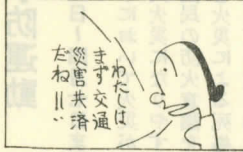 わたしは
まず交通
災害共済
だね!!